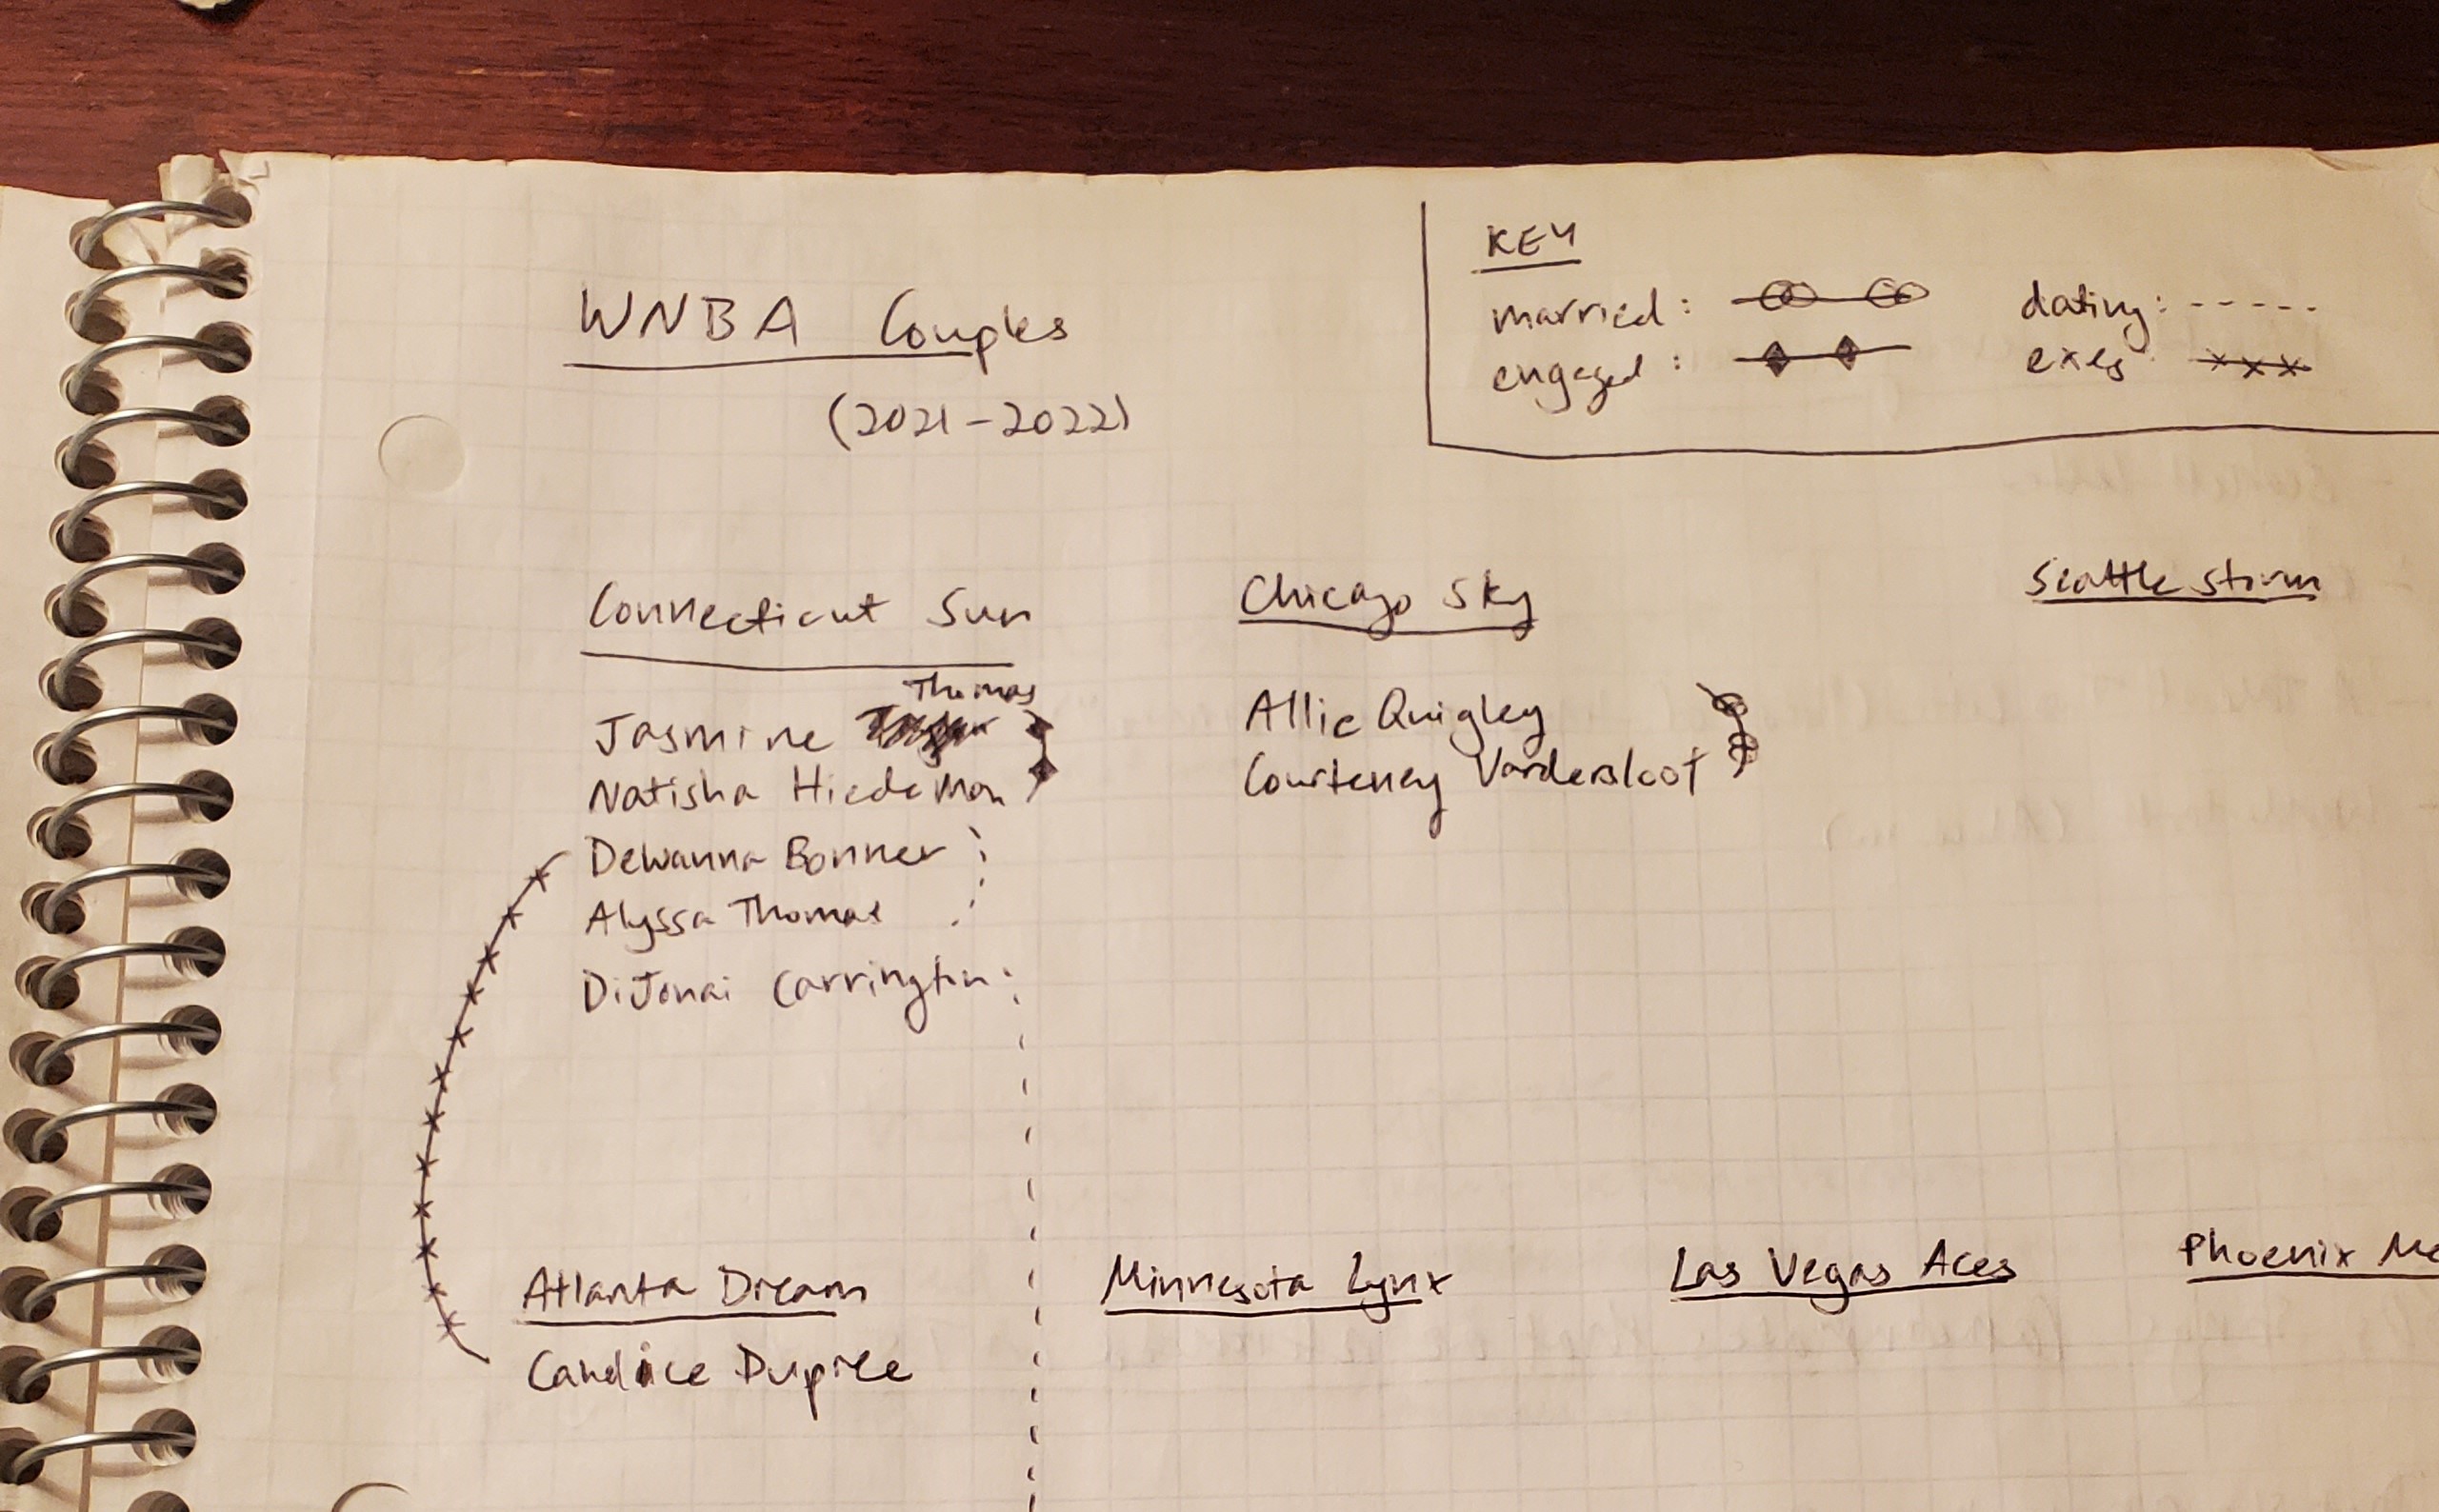 WNBA Couples
(2021-2022)
KEY
married:
dating:
engaged:
exes:
Connecticut Sun
Jasmine Thomas
Natisha Hiedeman
Dewanna Bonner
Alyssa Thomas
DiJonai Carrington
Chicago Sky
Allie Quigley
Courteney Vandersloot
Seattle Storm
Atlanta Dream
Candice Dupree
Minnesota Lynx
Las Vegas Aces
Phoenix Me